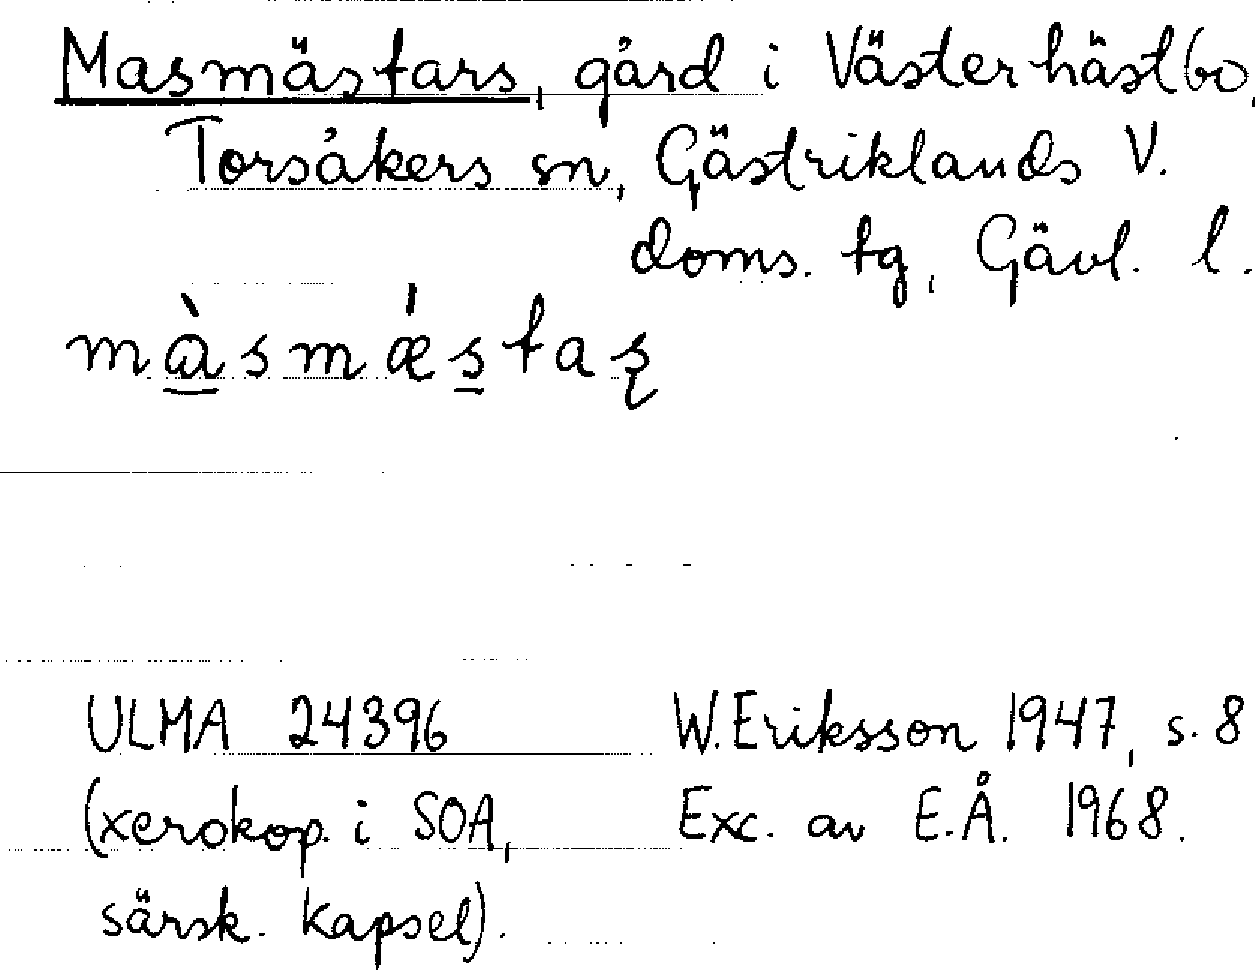 Masmästars, gård i Västerhästbo,
Torsåkers sn, Gästriklands V.
doms. tg, Gävl. l.
mà̲smǽs̲taʂ
ULMA 24396 W. Eriksson 1947, s. 8
(xerokop. i SOA, Exc. av E.Å. 1968.
särsk. kapsel).